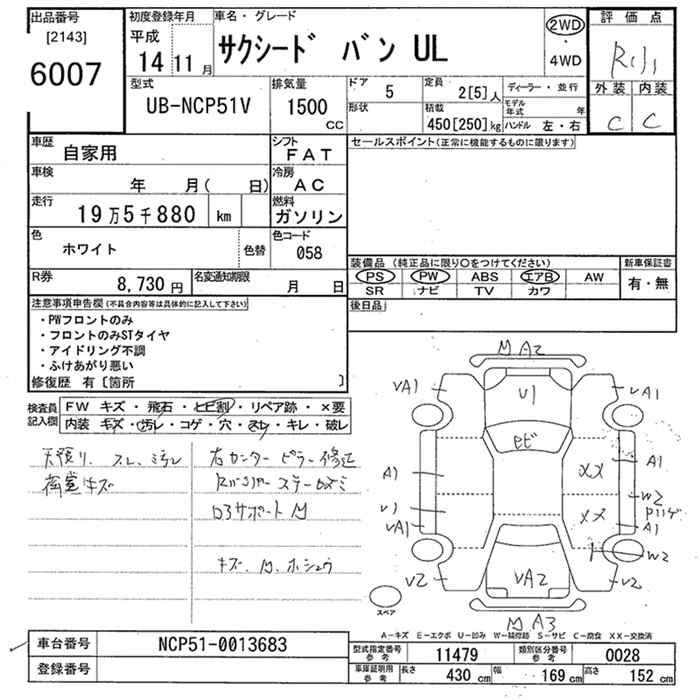 出品番号
[2143]
6007
初度登録年月
平成
14年 11月
車名・グレード
サクシード バン UL
2WD
・
4WD
評価点
外装 内装
C C
型式
UB-NCP51V
排気量
1500
CC
ドア
5
定員
2[5]人
形状
積載
450[250]kg
ディーラー・並行
モデル年式 年
ハンドル 左・右
車歴
自家用
シフト
FAT
車検
年 月( 日)
冷房
AC
走行
19万5千880 km
燃料
ガソリン
色
ホワイト
色替
色コード
058
R券
8,730円
名変通知期限
月 日
セールスポイント(正常に機能するものに限ります)
装備品(純正品に限り○をつけてください)
PS PW ABS エアB AW
SR ナビ TV カワ
新車保証書
有・無
後日品
注意事項申告欄(不具合内容等は具体的に記入して下さい)
・PWフロントのみ
・フロントのみSTタイヤ
・アイドリング不調
・ふけあがり悪い
修復歴 有〔箇所 〕
検査員記入欄
FW キズ・飛石・ヒビ割・リペア跡・×要
内装 キズ・汚レ・コゲ・穴・スレ・キレ・破レ
天張り、スレ、
荷室キズ
右センターピラー修正
ロアサポートM
キズ、M、ホシュウ
M A2
VA1 U1 VA1
ヒビ
A1 XX A1
W2
U1 XX A1
VA1
W2
V2 VA2 V2
スペア
M A3
A-キズ E-エクボ U-凹み W-補修跡 S-サビ C-腐食 XX-交換済
車台番号
NCP51-0013683
登録番号
型式指定番号
参考
11479
類別区分番号
参考
0028
車庫証明用
参考
長さ 430 cm 幅 169 cm 高さ 152 cm